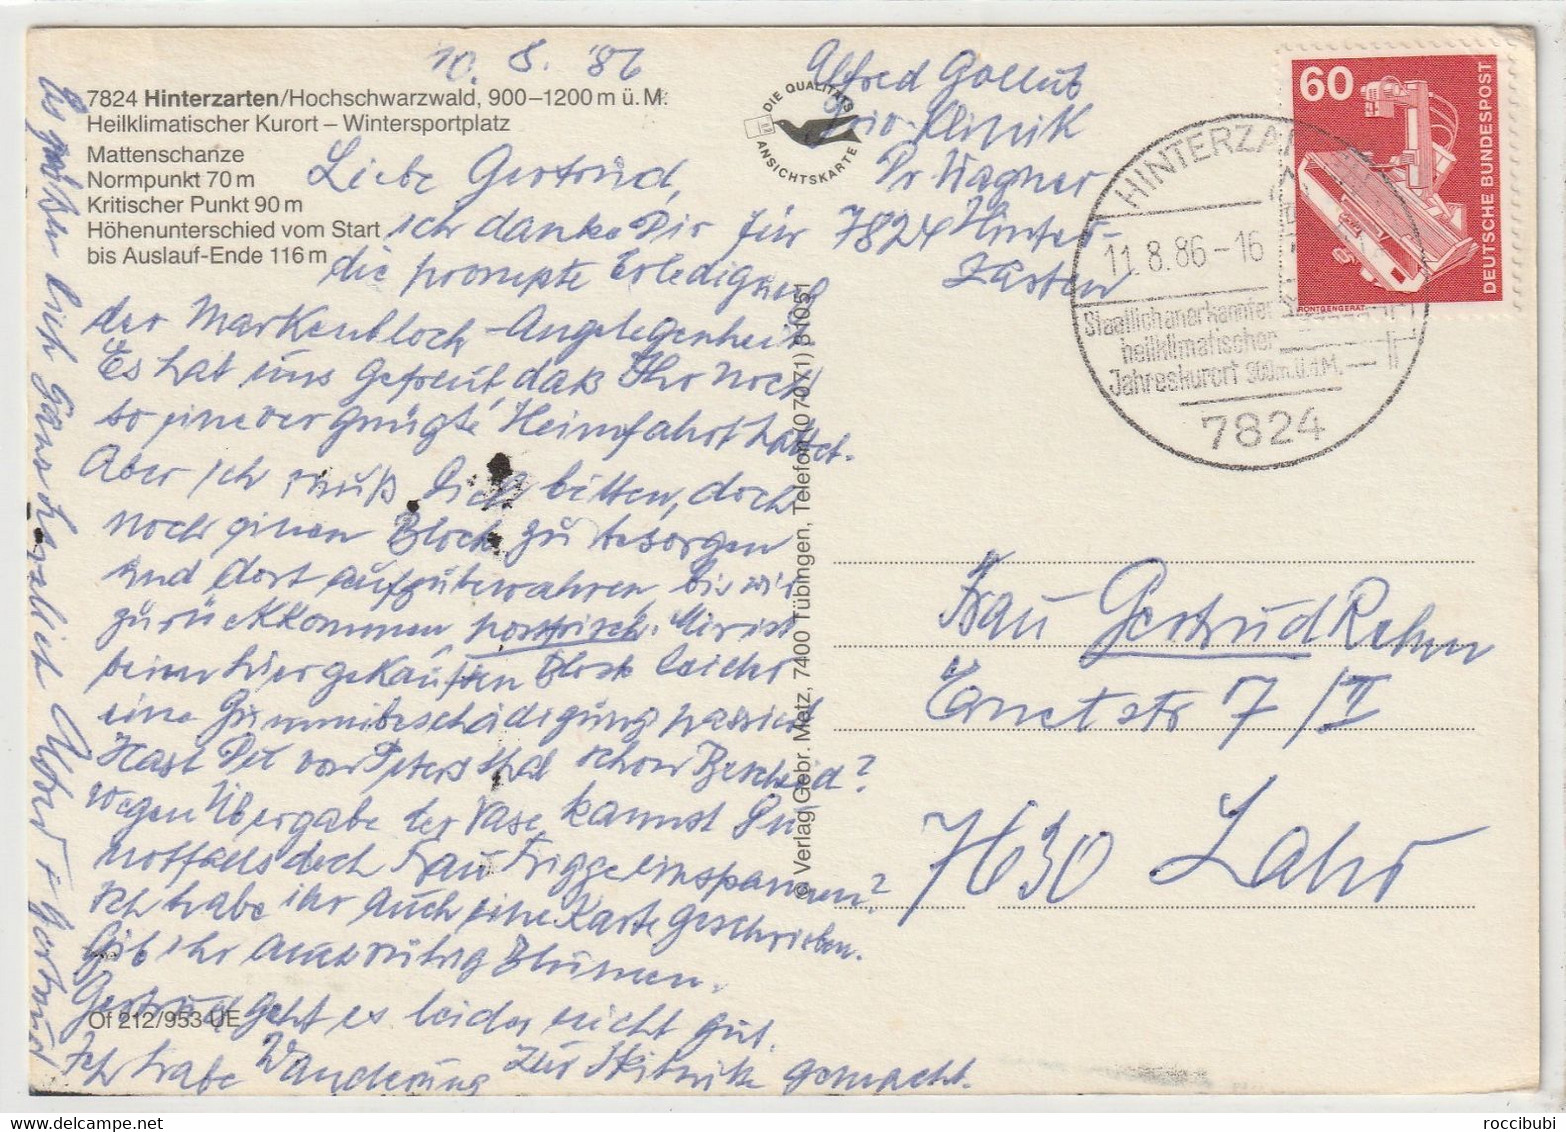 10. 8. '86
7824 Hinterzarten/Hochschwarzwald, 900–1200 m ü. M.
Heilklimatischer Kurort – Wintersportplatz
Mattenschanze
Normpunkt 70 m
Kritischer Punkt 90 m
Höhenunterschied vom Start
bis Auslauf-Ende 116 m
Liebe Gertrud,
ich danke Dir für
die prompte Erledigung
der Markenblock-Angelegenheit
Es hat uns gefreut, daß Ihr noch
so eine vergnügte Heimfahrt hattet.
Aber ich muß Dich bitten, doch
noch einen Block zu besorgen
und dort aufzubewahren bis wir
zurückkommen postfrisch. Mir ist
beim hier gekauften Block leider
eine Gummibeschädigung passiert
Hast Du von Petersthal schon Bescheid?
wegen Übergabe der Vase kannst Du
notfalls doch Frau Frigge einspannen?
Ich habe ihr auch eine Karte geschrieben.
Gib ihr Blumen.
Gertrud geht es leider nicht gut.
Ich habe Wanderung zur gemacht.
Es grüßen Dich ganz herzlich + Gertrud
Of 212/953 UE
DIE QUALITÄTS
ANSICHTSKARTE
© Verlag Gebr. Metz, 7400 Tübingen, Telefon (07071) 81051
Alfred Gollub
Klinik
Dr Wagner
7824 Hinter-
zarten
HINTERZARTEN
11.8.86-16
Staatlich anerkannter
heilklimatischer
Jahreskurort 900m.ü.d.M.
7824
60
DEUTSCHE BUNDESPOST
RÖNTGENGERÄT
Frau Gertrud Rehm
Ernetstr 7/II
7630 Lahr
roccibubi